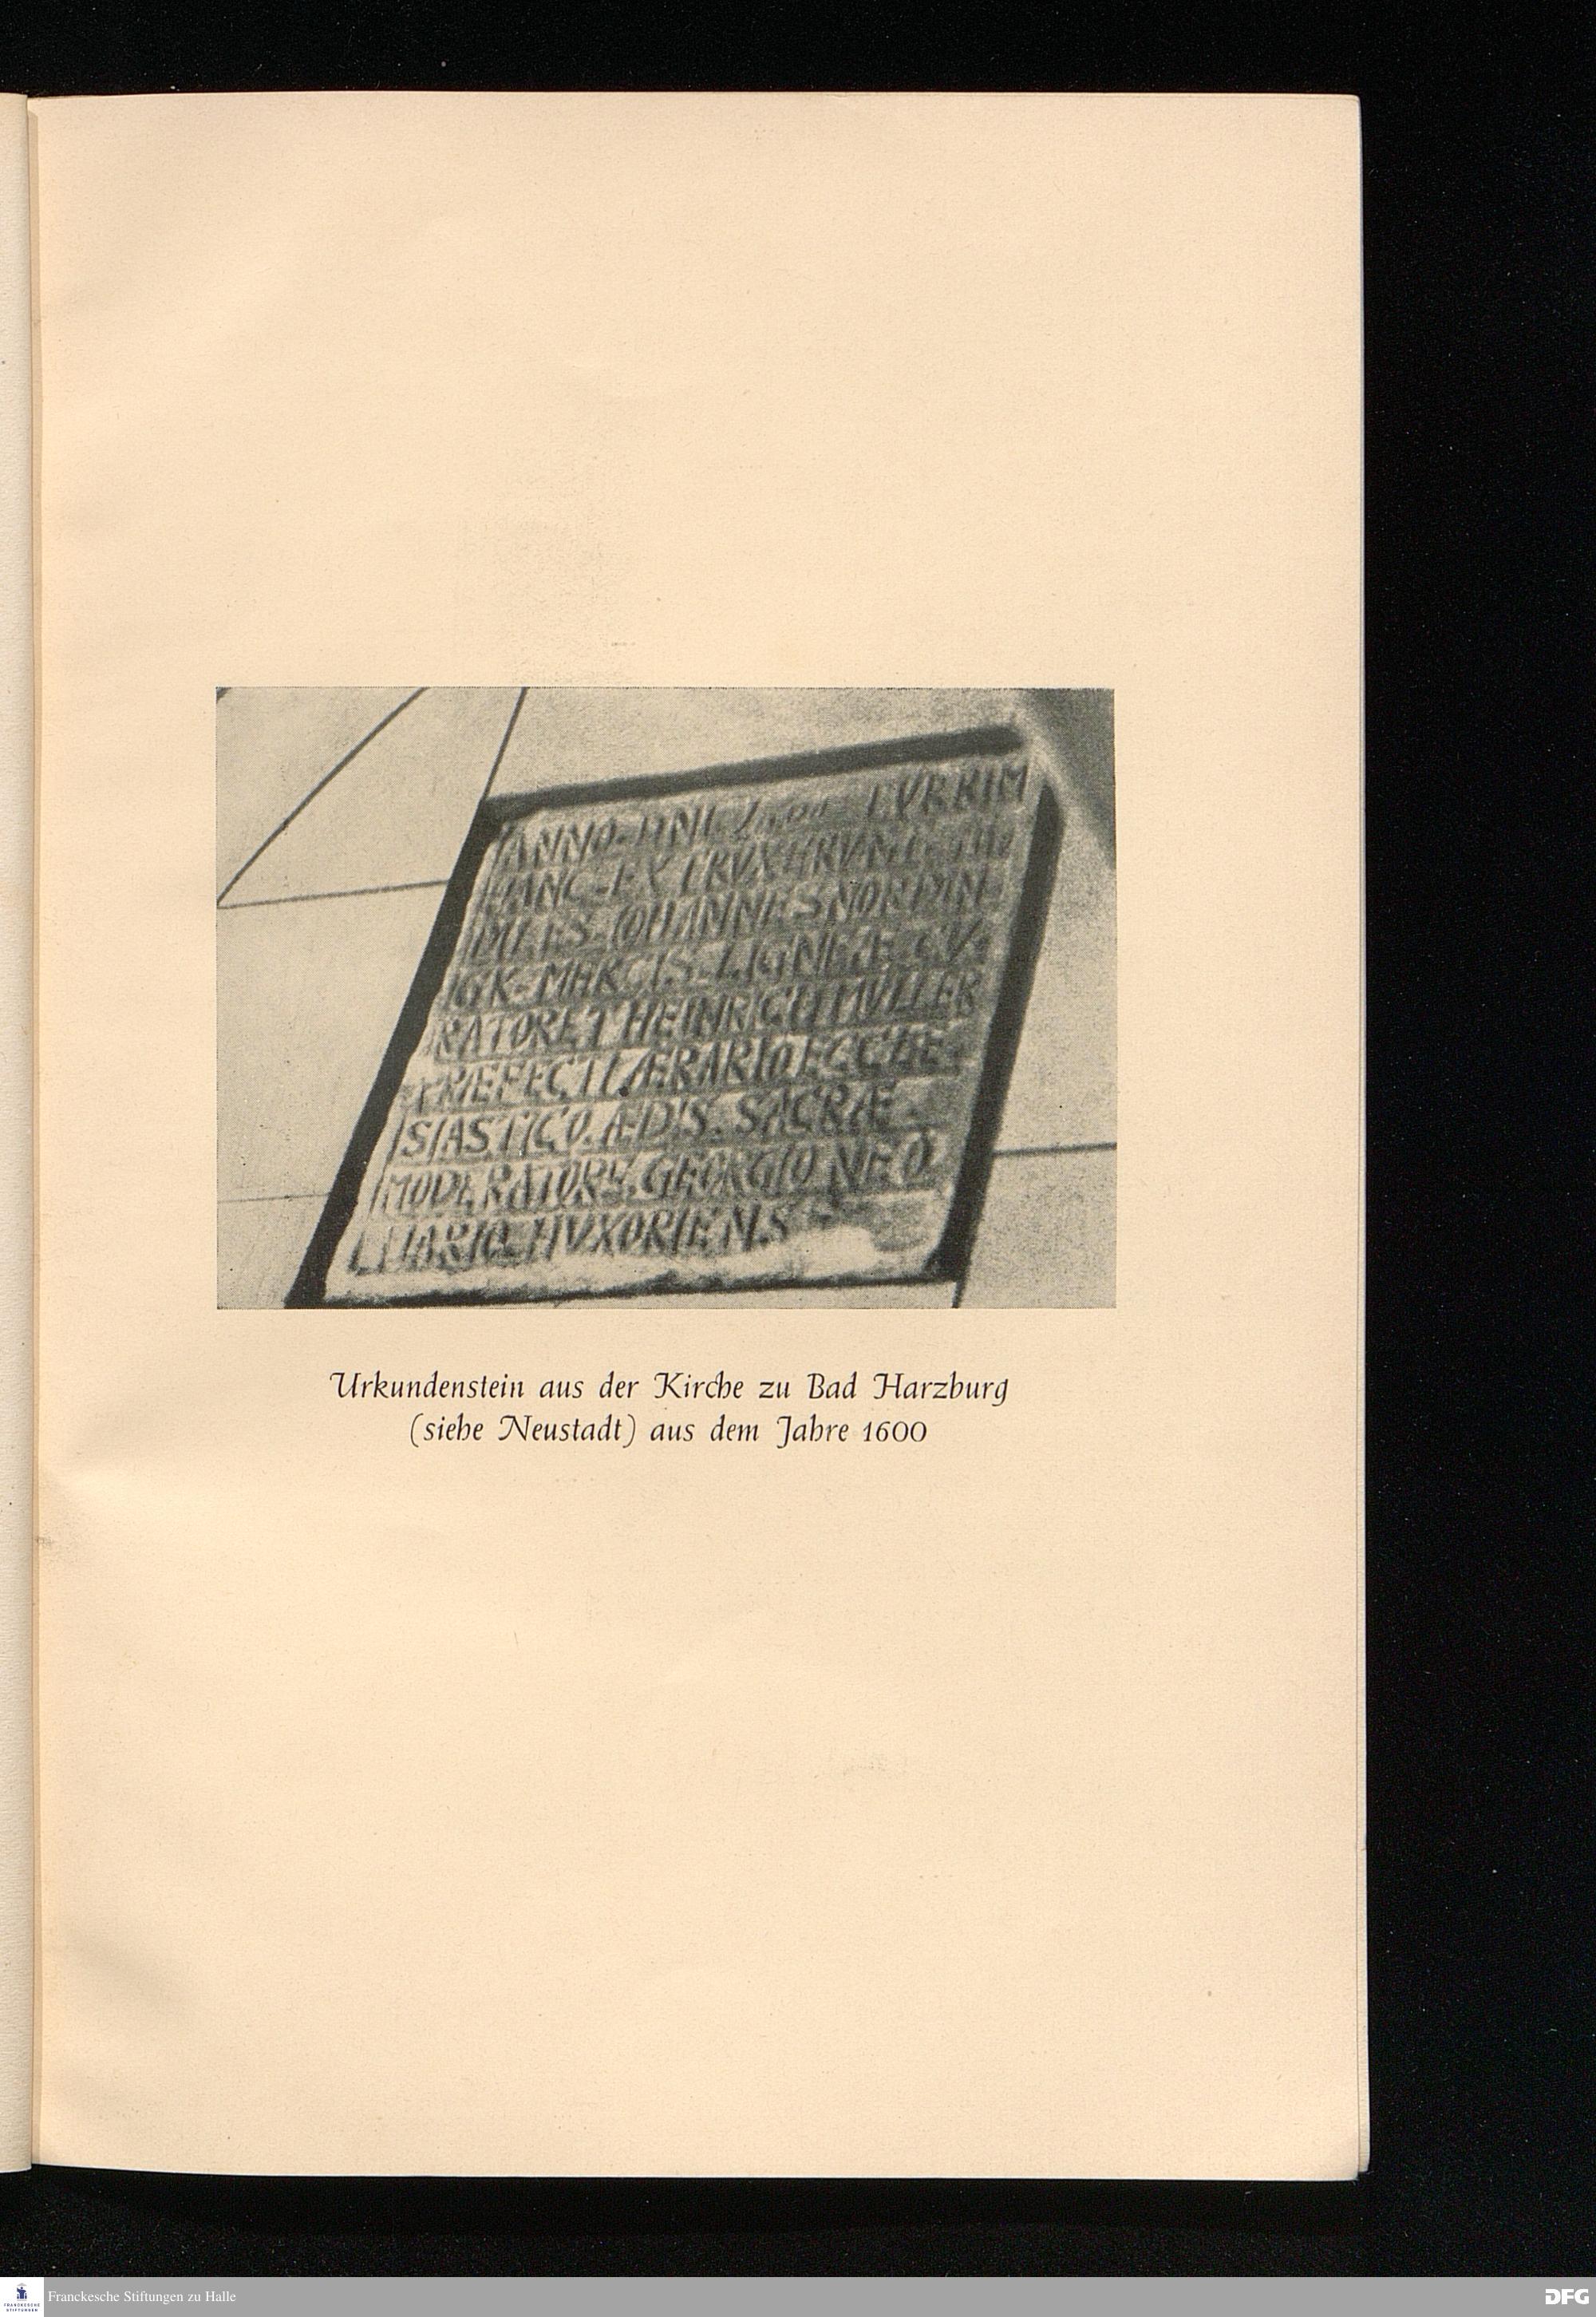 ANNO DNI TVRRIM
HANC EX
IOHANNES
MARCIS LIGNEÆ CV
RATORE T HEINRICH MÜLLER
PRÆFECTI ÆRARIO ECCLE
SIASTICO. ÆDIS. SACRÆ
MODERATORE. GEORGIO NEO
HUXORIENS
Urkundenstein aus der Kirche zu Bad Harzburg
(siehe Neustadt) aus dem Jahre 1600
Franckesche Stiftungen zu Halle
DFG